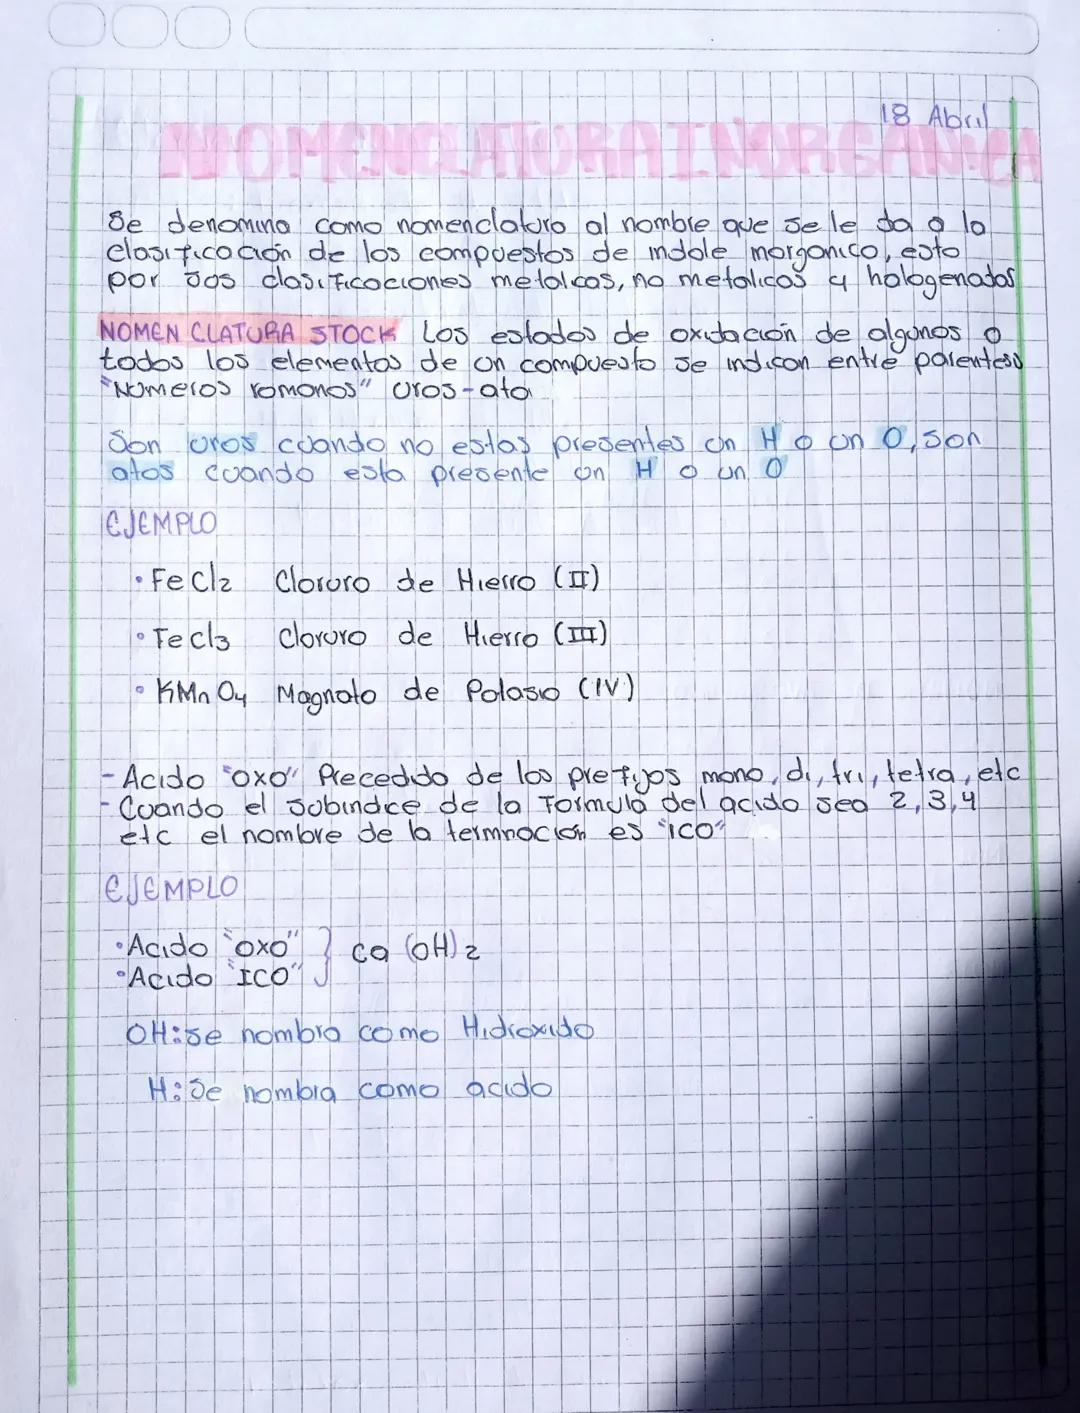 18 Abril
NOMENCLATURA INORGANICA
Se denomina como nomenclatura al nombre que se le da a la
clasificación de los compuestos de indole inorganico, esto
por sus clasificaciones metalcas, no metalicos y halogenados
NOMEN CLATURA STOCK Los estados de oxidación de algunos o
todos los elementos de un compuesto se indican entre parentesis
"Números romanos" Uros-ato
Son uros cuando no estas presentes un H o un O, son
atos cuando esta presente un H o un O
EJEMPLO
• FeCl2 Cloruro de Hierro (II)
• FeCl3 Cloruro de Hierro (III)
• KMnO4 Magnato de Potasio (IV)
- Acido "oxo" Precedido de los prefijos mono, di, tri, tetra, etc
- Cuando el subindice de la formula del acido sea 2, 3, 4
etc el nombre de la termnación es "ico"
EJEMPLO
• Acido "oxo" } ca (OH)2
• Acido "ICO"
OH: se nombra como Hidroxido
H: Se nombra como acido